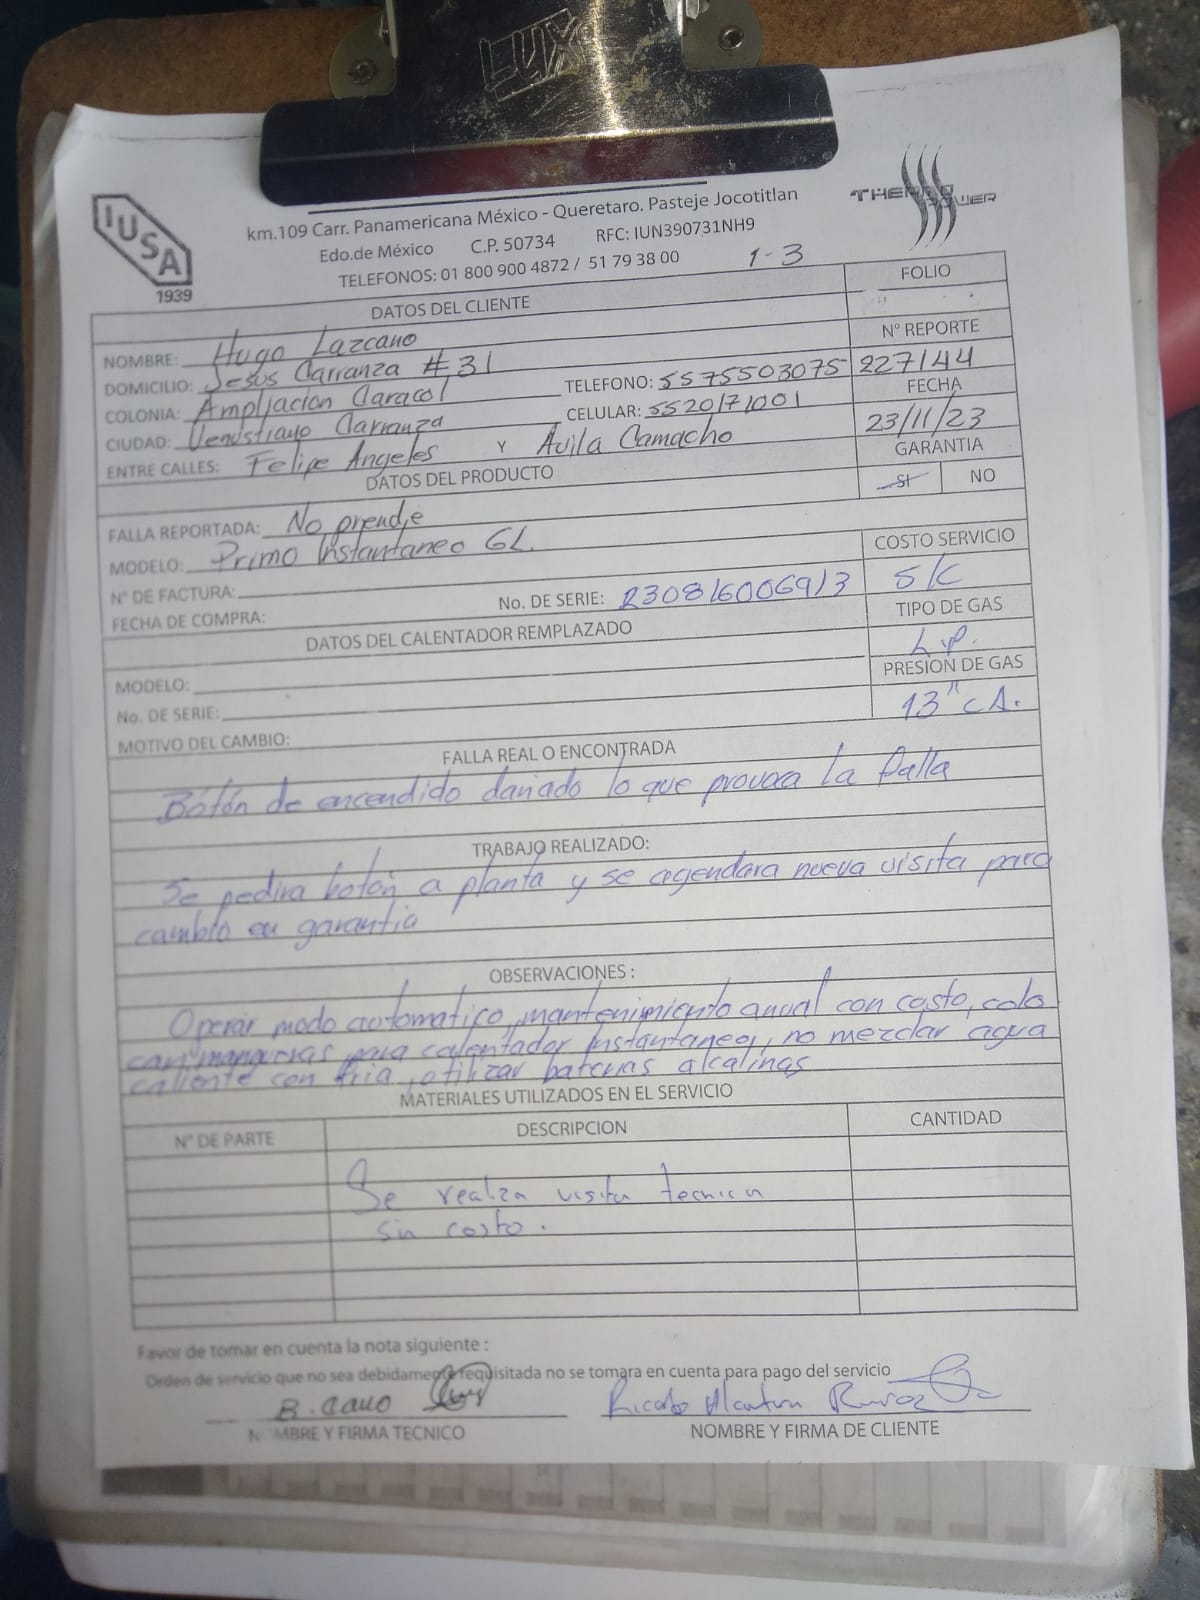 LUX
IUSA
1939
THERMO POWER
km.109 Carr. Panamericana México - Queretaro. Pasteje Jocotitlan
Edo.de México C.P. 50734 RFC: IUN390731NH9
TELEFONOS: 01 800 900 4872 / 51 79 38 00
1-3
DATOS DEL CLIENTE
FOLIO
NOMBRE: Hugo Lazcano
Nº REPORTE
DOMICILIO: Jesus Carranza # 31
TELEFONO: 5575503075
227144
COLONIA: Ampliacion Caracol
CELULAR: 5520171001
FECHA
CIUDAD: Venustiano Carranza
23/11/23
ENTRE CALLES: Felipe Angeles Y Avila Camacho
GARANTIA
DATOS DEL PRODUCTO
SI NO
FALLA REPORTADA: No prende
MODELO: Primo Instantaneo 6L.
COSTO SERVICIO
N° DE FACTURA:
No. DE SERIE: 2308160069/3
S/C
FECHA DE COMPRA:
TIPO DE GAS
DATOS DEL CALENTADOR REMPLAZADO
L.P.
PRESION DE GAS
MODELO:
13" cA.
No. DE SERIE:
MOTIVO DEL CAMBIO:
FALLA REAL O ENCONTRADA
Botón de encendido dañado lo que provoca la falla
TRABAJO REALIZADO:
Se pedira botón a planta y se agendara nueva visita para
cambio en garantia
OBSERVACIONES :
Operar modo automatico, mantenimiento anual con costo, colo
car mangueras para calentador instantaneo, no mezclar agua
caliente con fria, utilizar baterias alcalinas
MATERIALES UTILIZADOS EN EL SERVICIO
N° DE PARTE DESCRIPCION CANTIDAD
Se realiza visita tecnica
sin costo.
Favor de tomar en cuenta la nota siguiente :
Orden de servicio que no sea debidamente requisitada no se tomara en cuenta para pago del servicio
B. Cano
Ricardo
NOMBRE Y FIRMA TECNICO
NOMBRE Y FIRMA DE CLIENTE